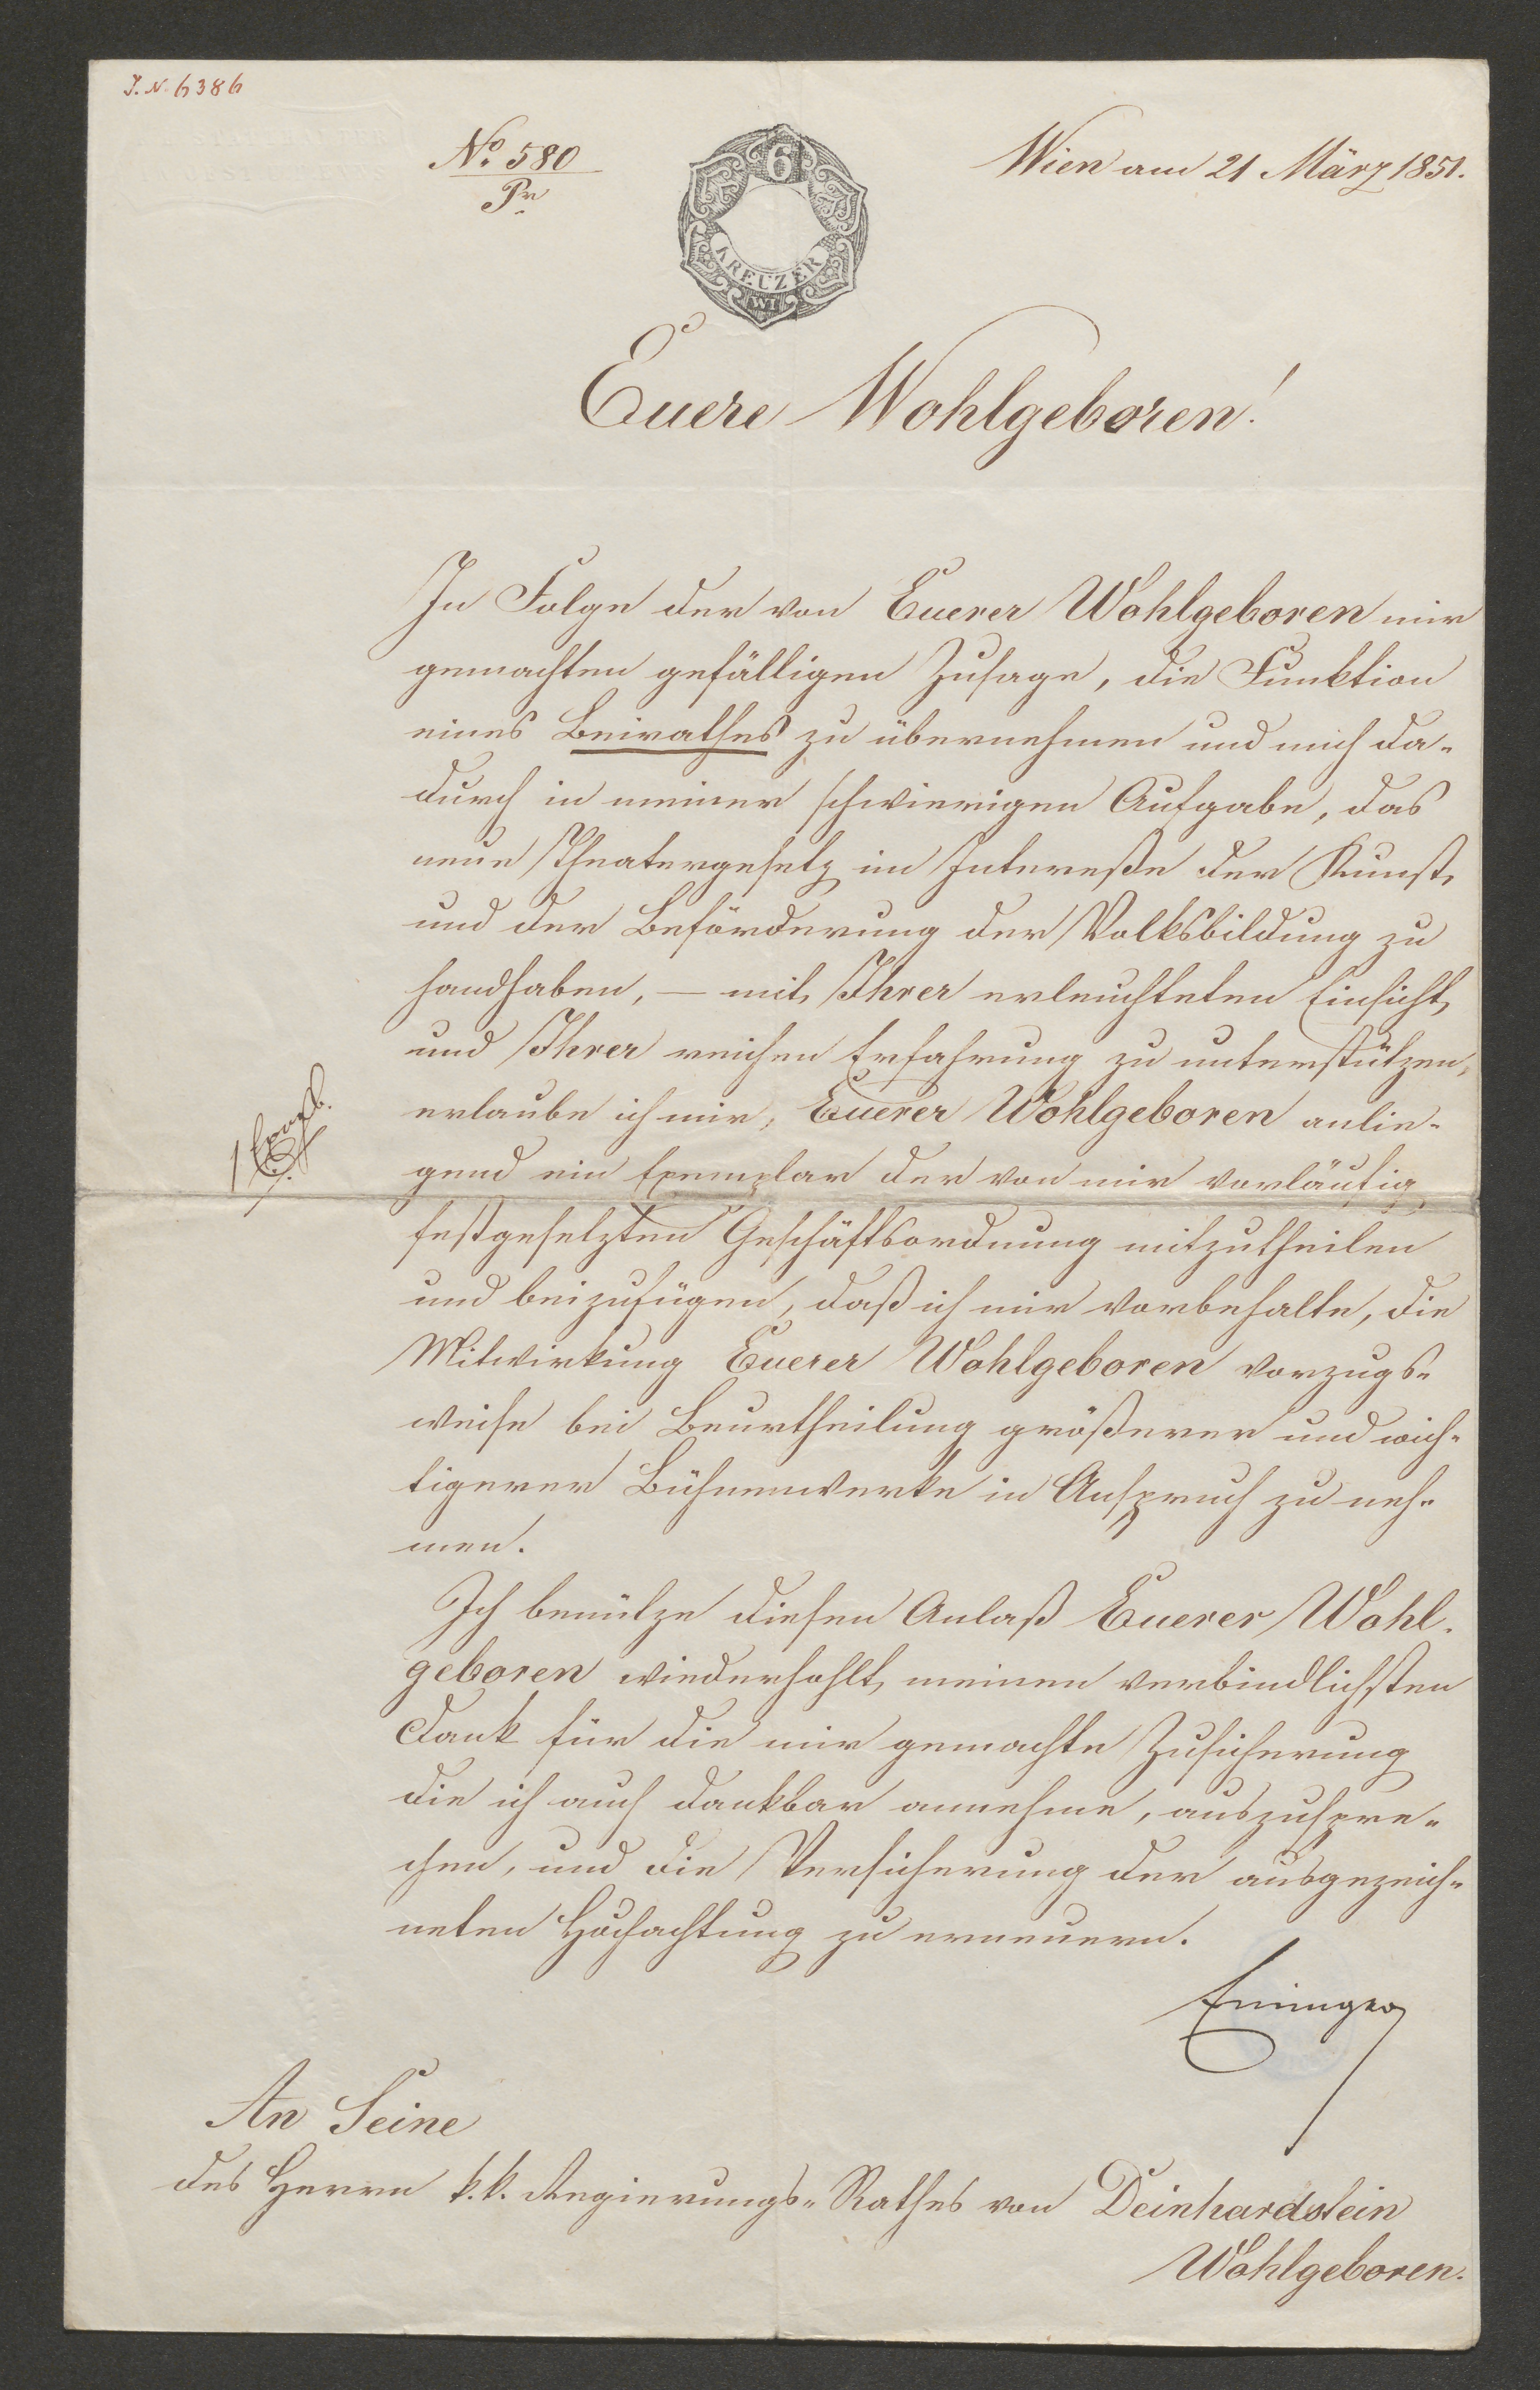 J.N. 6386
No. 580
Pr
6
KREUZER
WI
Wien am 21 März 1851.
Euere Wohlgeboren!
In Folge der von Euerer Wohlgeboren mir
gemachten gefälligen Zusage, die Funktion
eines Beirathes zu übernehmen und mich da-
durch in meiner schwierigen Aufgabe, das
neue Theatergesetz im Interesse der Kunst
und der Beförderung der Volksbildung zu
handhaben, — mit Ihrer erleuchteten Einsicht
und Ihrer reichen Erfahrung zu unterstützen,
erlaube ich mir, Euerer Wohlgeboren anlie-
gend ein Exemplar der von mir vorläufig
festgesetzten Geschäftsordnung mitzutheilen
und beizufügen, daß ich mir vorbehalte, die
Mitwirkung Euerer Wohlgeboren vorzugs-
weise bei Beurtheilung größerer und wich-
tigerer Bühnenwerke in Anspruch zu neh-
men.
Ich benütze diesen Anlaß Euerer Wohl-
geboren wiederhohlt meinen verbindlichsten
Dank für die mir gemachte Zusicherung
die ich auch dankbar annehme, auszuspre-
chen, und die Versicherung der ausgezeich-
neten Hochachtung zu erneuern.
An Seine
des Herrn k.k. Regierungs-Rathes von Deinhardstein
Wohlgeboren.